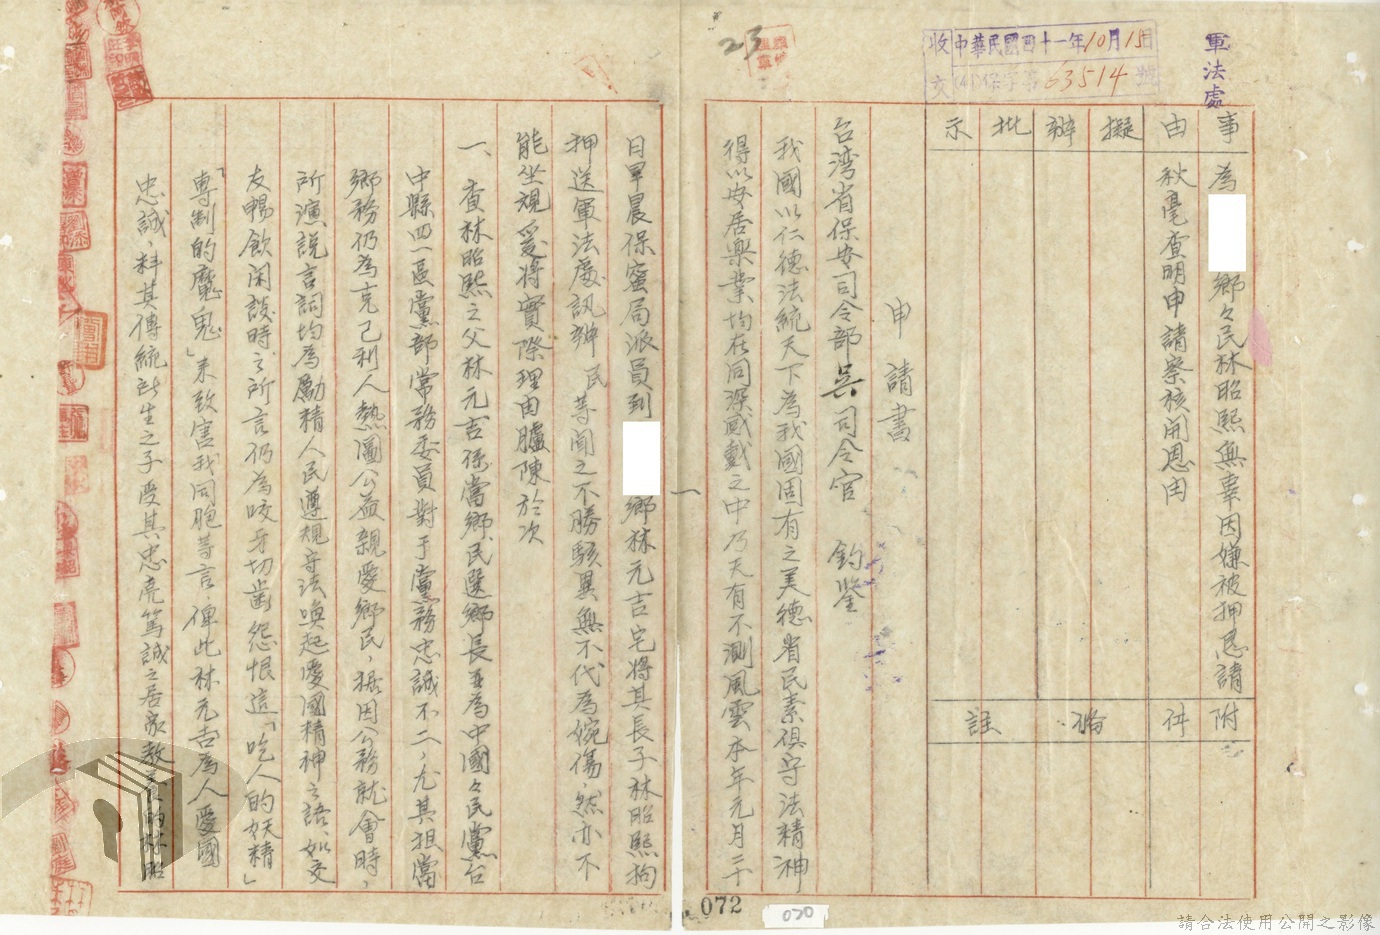 軍法處
收 中華民國四十一年10月15日
文 (41)保字第63514號
23
事 為 鄉々民林昭熙無辜因嫌被押懇請
由 秋毫查明申請察核開恩由
擬辦批示
附件
備註
申請書
台湾省保安司令部吳司令官 鈞鑒
我國以仁德法統天下為我國固有之美德省民素俱守法精神
得以安居樂業均在同深感戴之中乃天有不測風雲本年元月二十
一
日早晨保蜜局派員到 鄉林元吉宅將其長子林昭熙拘
押送軍法處訊辦民等聞之不勝駭異無不代為惋傷,然亦不
能坐視爰將實際理由臚陳於次
一、查林昭熙之父林元吉係當鄉民選鄉長並為中國々民黨台
中縣四一區黨部常務委員對于黨務忠誠不二,尤其担當
鄉務仍為克己利人熱圖公益親愛鄉民,據因公務就會時,
所演說言詞均為勵精人民遵規守法喚起愛國精神之語,如交
友暢飲閑談時之所言仍為咬牙切齒怨恨這「吃人的妖精」
「專制的魔鬼」來致害我同胞等言,俾此林元吉為人愛國
忠誠,料其傳統所生之子受其忠亮篤誠之居家教養的林昭
072
070
請合法使用公開之影像